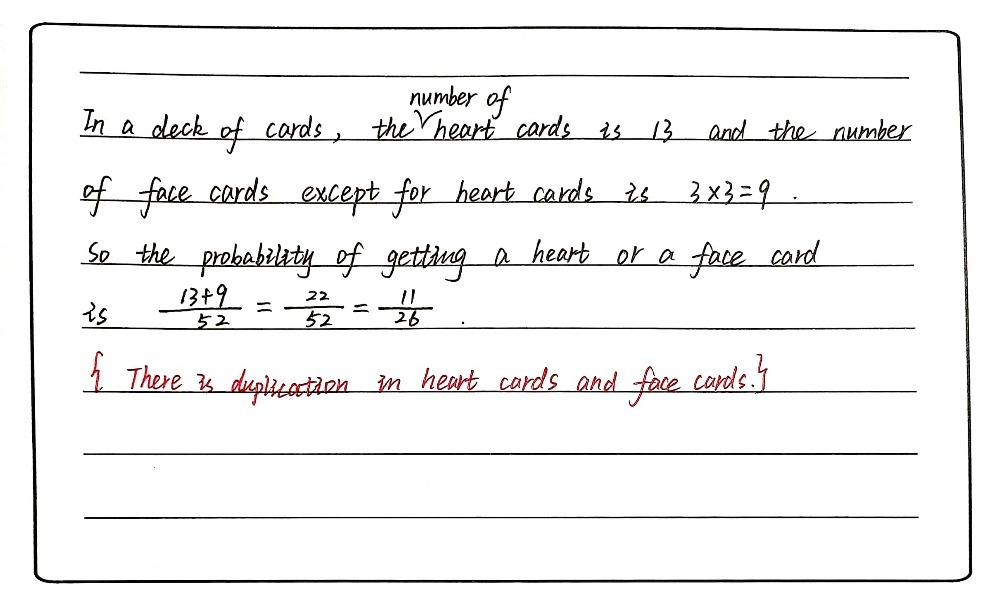 In a deck of cards, the number of heart cards is 13 and the number
of face cards except for heart cards is 3×3=9.
So the probability of getting a heart or a face card
is \frac{13+9}{52} = \frac{22}{52} = \frac{11}{26}.
{ There is duplication in heart cards and face cards.}